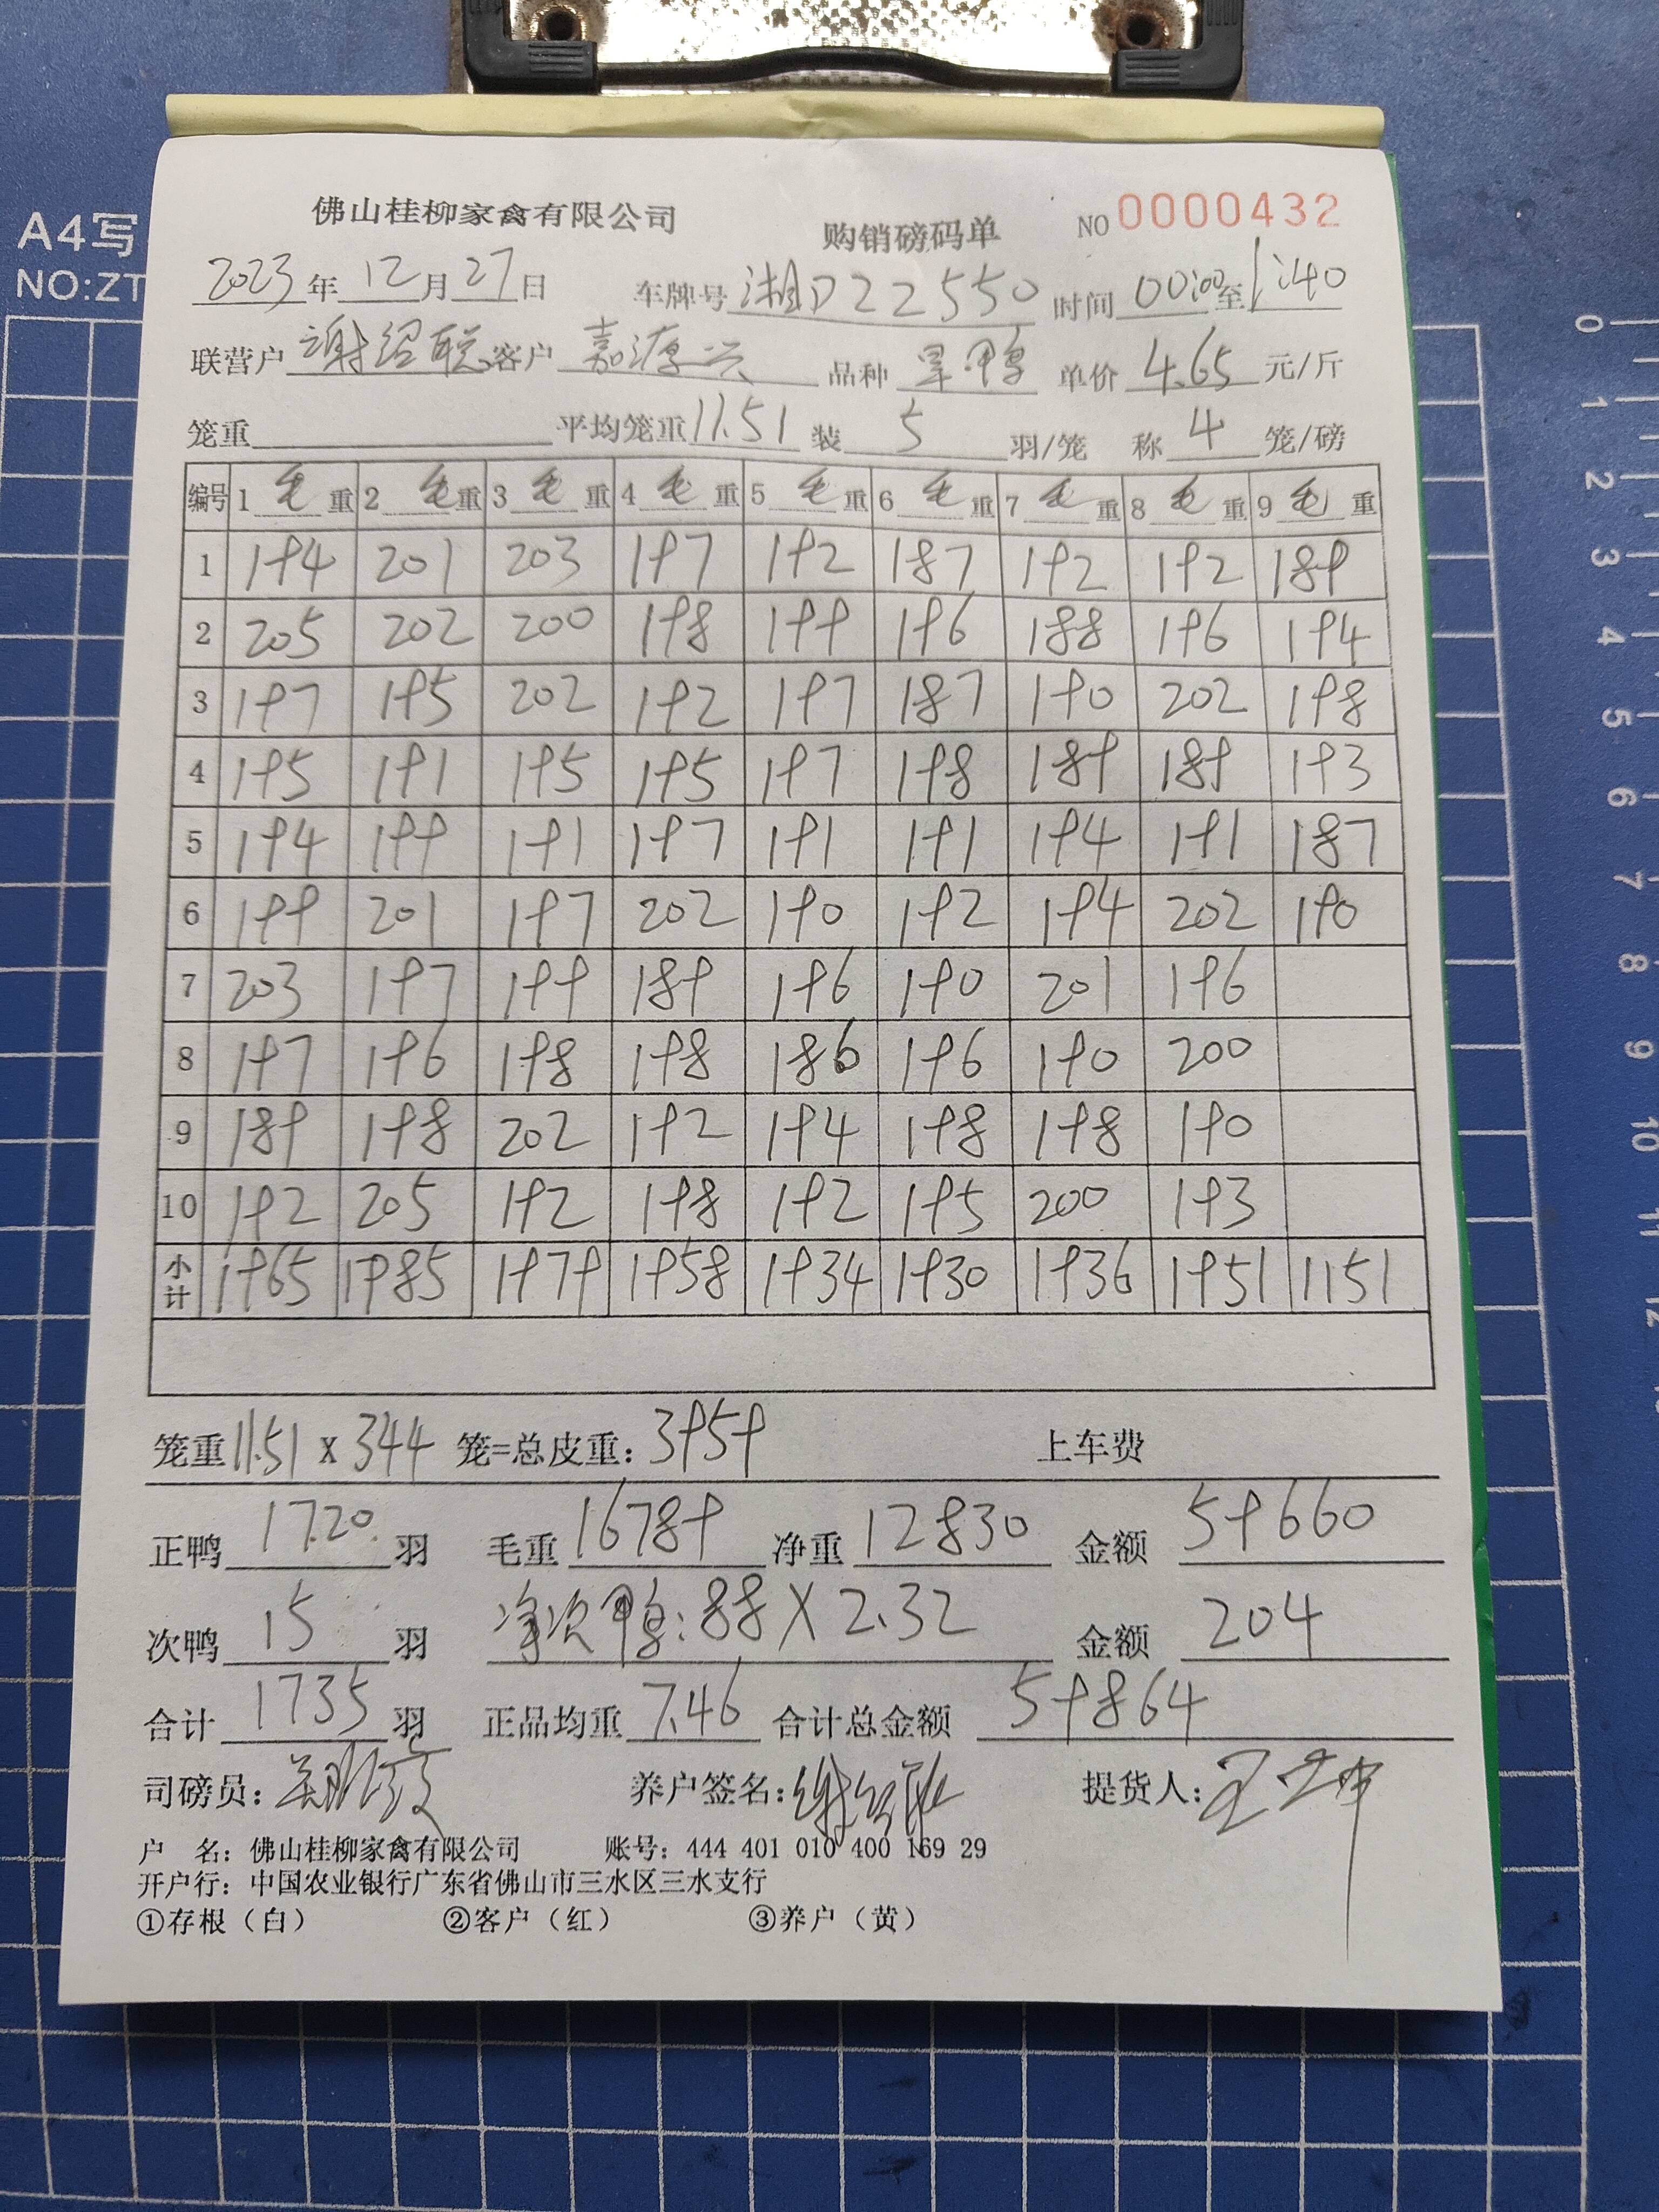 A4写
NO:ZT
佛山桂柳家禽有限公司 购销磅码单 NO 0000432
2023年12月27日 车牌号 湘D22550 时间 00:00至1:40
联营户 谢绍聪 客户 嘉源兴 品种 旱鸭 单价 4.65 元/斤
笼重 平均笼重 11.51 装 5 羽/笼 称 4 笼/磅
编号 1 毛重 2 毛重 3 毛重 4 毛重 5 毛重 6 毛重 7 毛重 8 毛重 9 毛重
1 194 201 203 197 192 187 192 192 189
2 205 202 200 198 199 196 188 196 194
3 197 195 202 192 197 187 190 202 198
4 195 191 195 195 197 198 189 189 193
5 194 199 191 197 191 191 194 191 187
6 199 201 197 202 190 192 194 202 190
7 203 197 199 189 196 190 201 196
8 197 196 198 198 186 196 190 200
9 189 198 202 192 194 198 198 190
10 192 205 192 198 192 195 200 193
小计 1965 1985 1979 1958 1934 1930 1936 1951 1151
笼重 11.51 x 344 笼=总皮重: 3959 上车费
正鸭 1720 羽 毛重 16789 净重 12830 金额 59660
次鸭 15 羽 净次鸭:88 X 2.32 金额 204
合计 1735 羽 正品均重 7.46 合计总金额 59864
司磅员: 养户签名: 提货人:
户 名: 佛山桂柳家禽有限公司 账号: 444 401 010 400 169 29
开户行: 中国农业银行广东省佛山市三水区三水支行
①存根(白) ②客户(红) ③养户(黄)
0
1
2
3
4
5
6
7
8
9
10
11
12